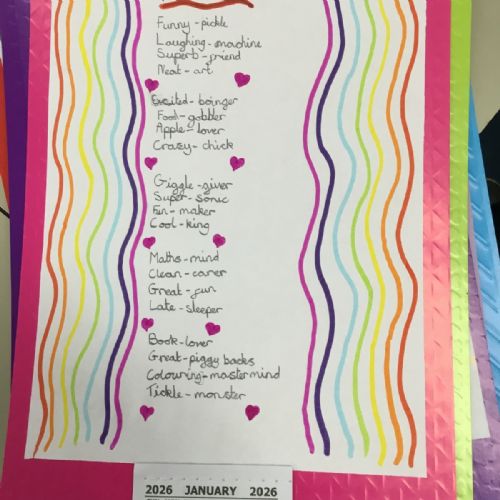 Funny-pickle
Laughing-machine
Superb-friend
Neat-art
Excited-boinger
Food-gobbler
Apple-lover
Crazy-chick
Giggle-giver
Super-sonic
Fun-maker
Cool-king
Maths-mind
Clean-carer
Great-fun
Late-sleeper
Book-lover
Great-piggy backs
Colouring-mastermind
Tickle-monster
2026 JANUARY 2026